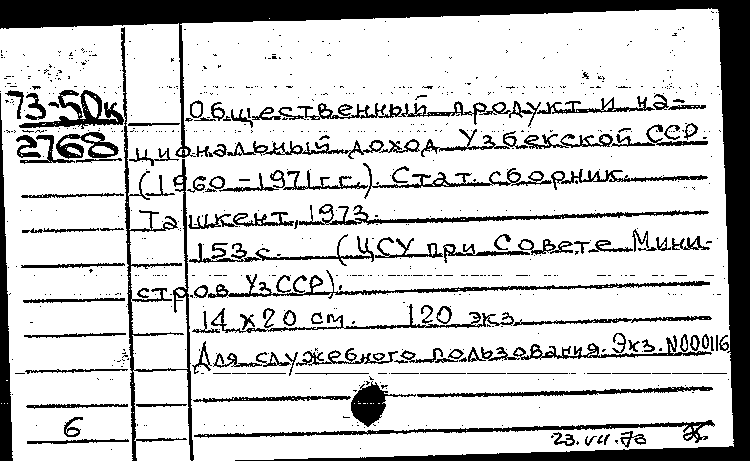 73-50к Общественный продукт и на-
2768 циональный доход Узбекской ССР.
(1960-1971гг.). Стат. сборник.
Ташкент, 1973.
153 с. (ЦСУ при Совете Мини-
стров УзССР).
14 x 20 cm. 120 экз.
Для служебного пользования. Экз. N000116
6
23.VII.73